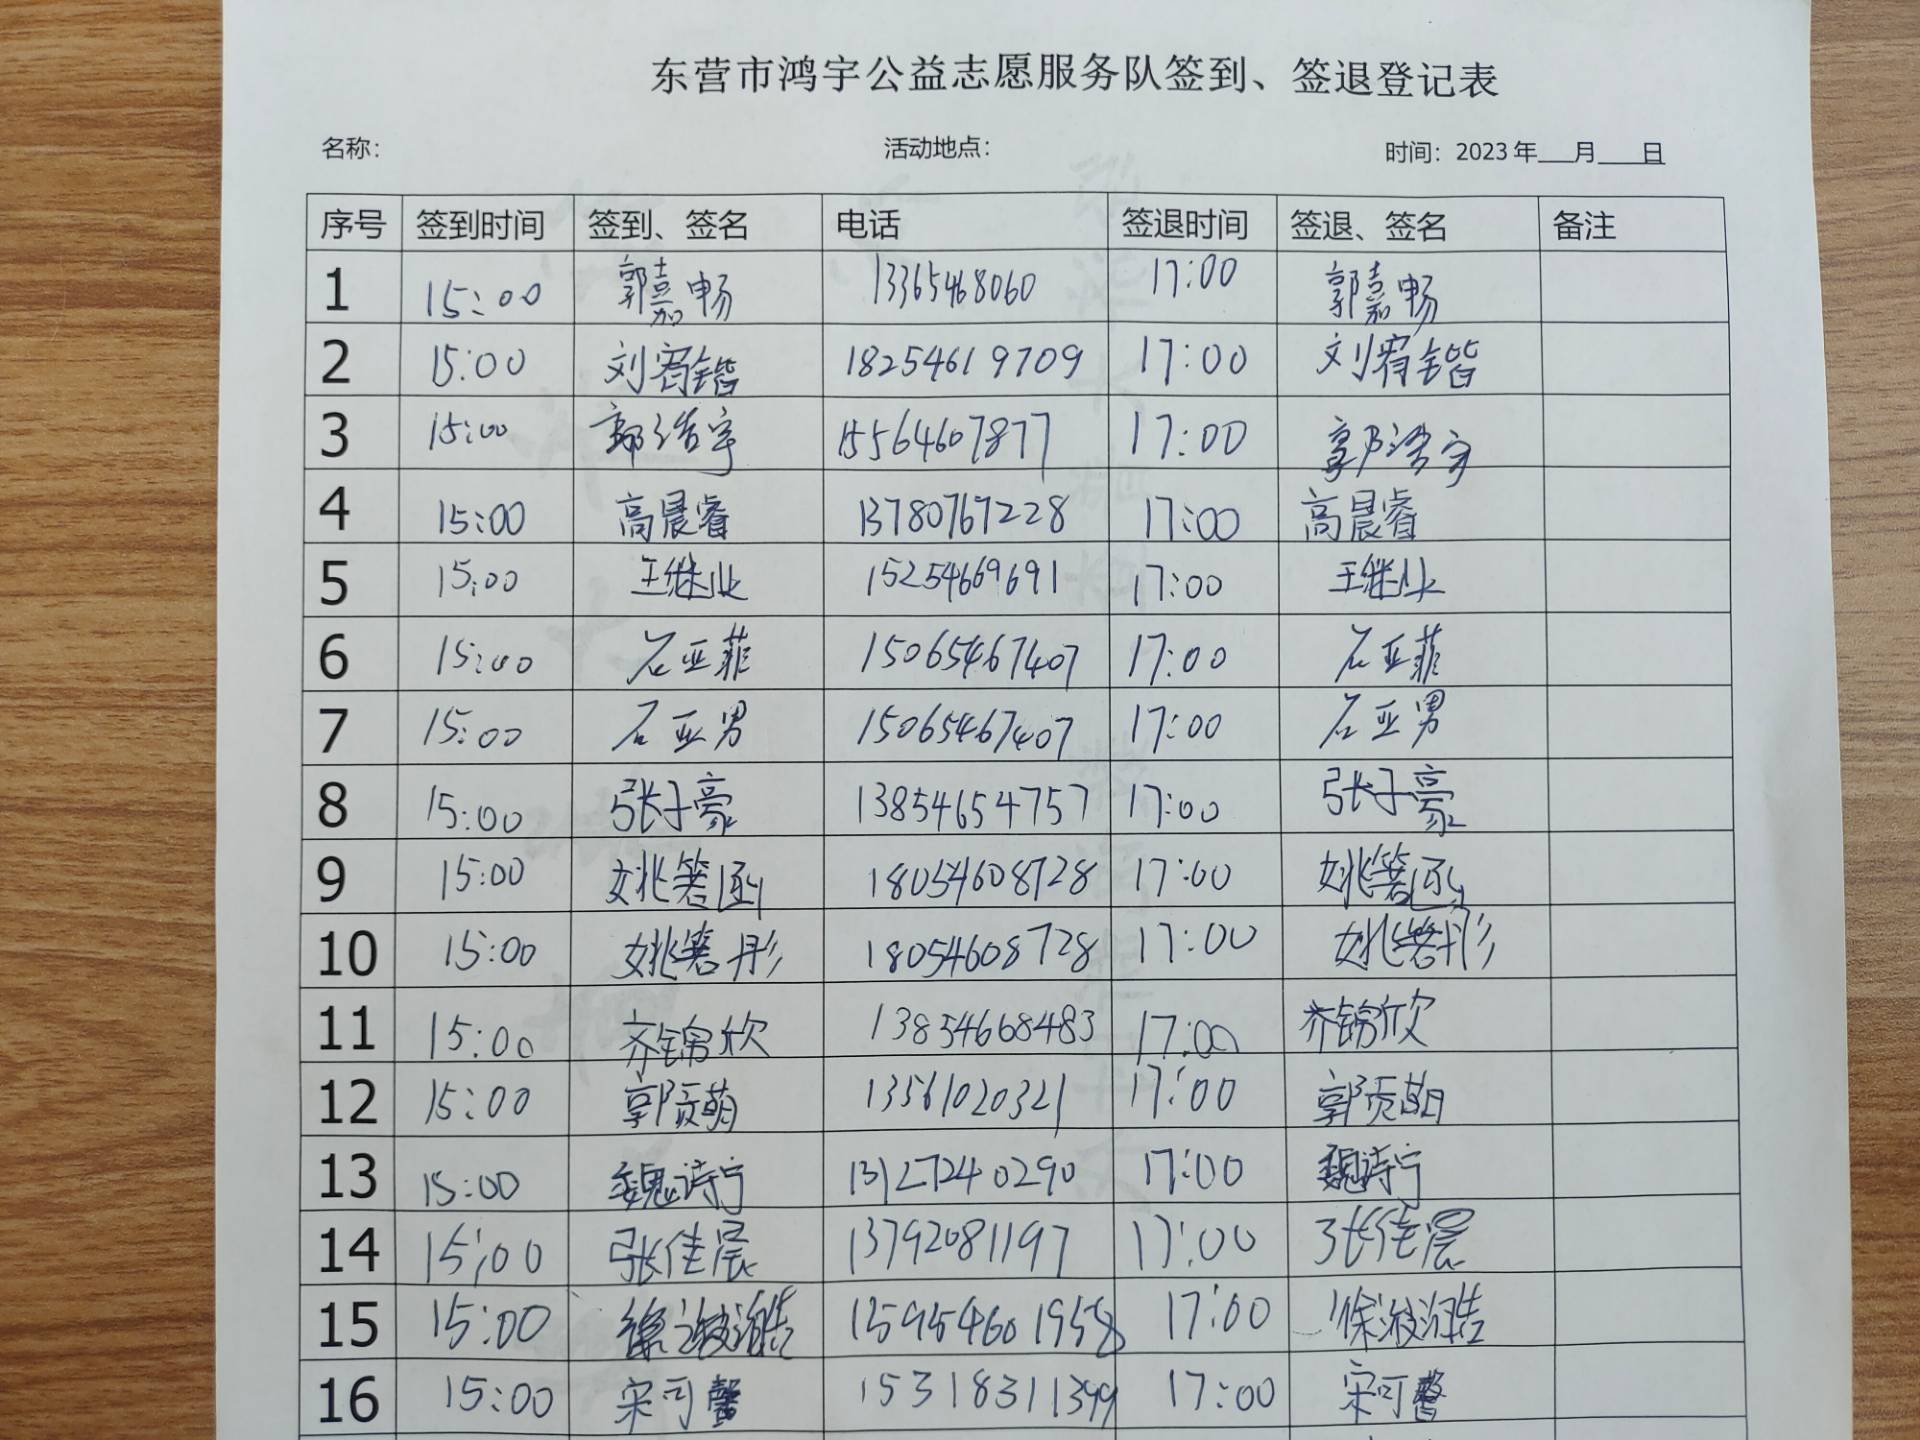 东营市鸿宇公益志愿服务队签到、签退登记表
名称： 活动地点： 时间：2023年___月___日
序号 签到时间 签到、签名 电话 签退时间 签退、签名 备注
1 15:00 郭嘉畅 13365468060 17:00 郭嘉畅
2 15:00 刘宥锴 18254619709 17:00 刘宥锴
3 15:00 郭浩宇 15564607877 17:00 郭浩宇
4 15:00 高晨睿 13780767228 17:00 高晨睿
5 15:00 王继业 15254669691 17:00 王继业
6 15:00 石亚菲 15065467407 17:00 石亚菲
7 15:00 石亚男 15065467407 17:00 石亚男
8 15:00 张子豪 13854654757 17:00 张子豪
9 15:00 姚箬函 18054608728 17:00 姚箬函
10 15:00 姚箬彤 18054608728 17:00 姚箬彤
11 15:00 齐锦欣 13854668483 17:00 齐锦欣
12 15:00 郭贡萌 13561020321 17:00 郭贡萌
13 15:00 魏诗宁 13127240290 17:00 魏诗宁
14 15:00 张佳晨 13792081197 17:00 张佳晨
15 15:00 17:00
16 15:00 宋可馨 15318311399 17:00 宋可馨